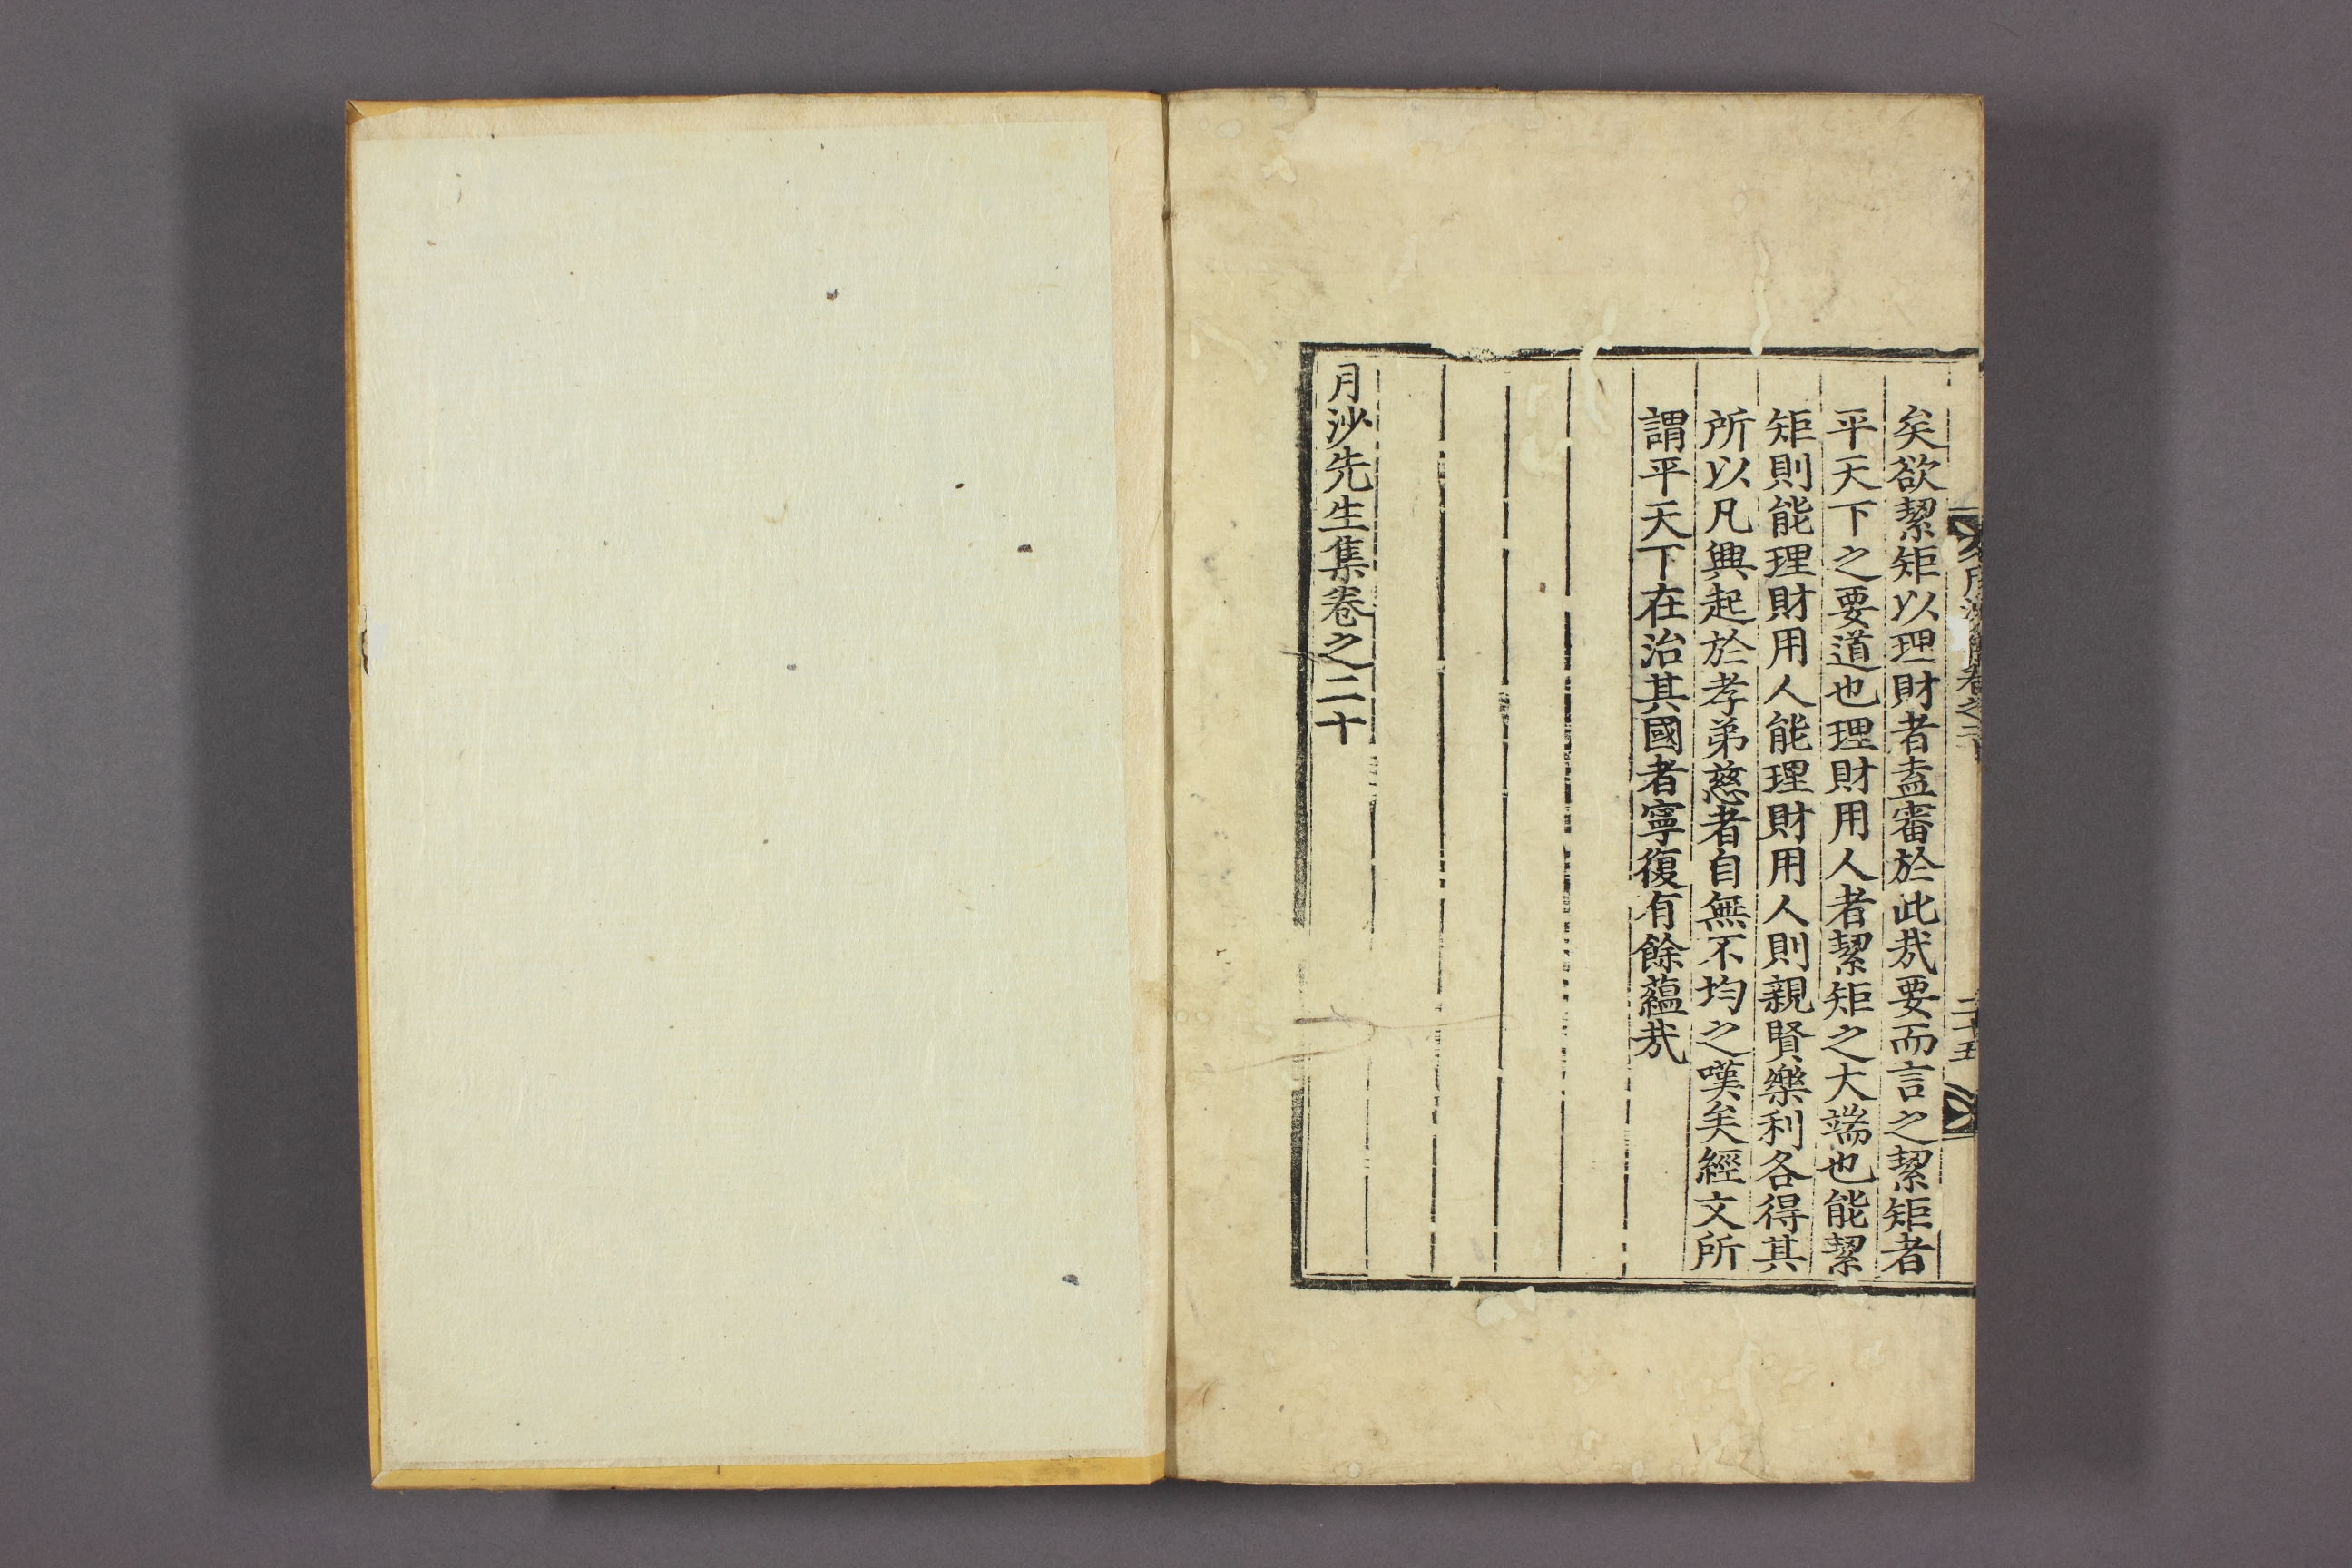 矣欲絜矩以理財者盍審於此哉要而言之絜矩者
平天下之要道也理財用人者絜矩之大端也能絜
矩則能理財用人能理財用人則親賢樂利各得其
所以凡興起於孝弟慈者自無不均之嘆矣經文所
謂平天下在治其國者寧復有餘蘊哉
月沙先生集卷之二十